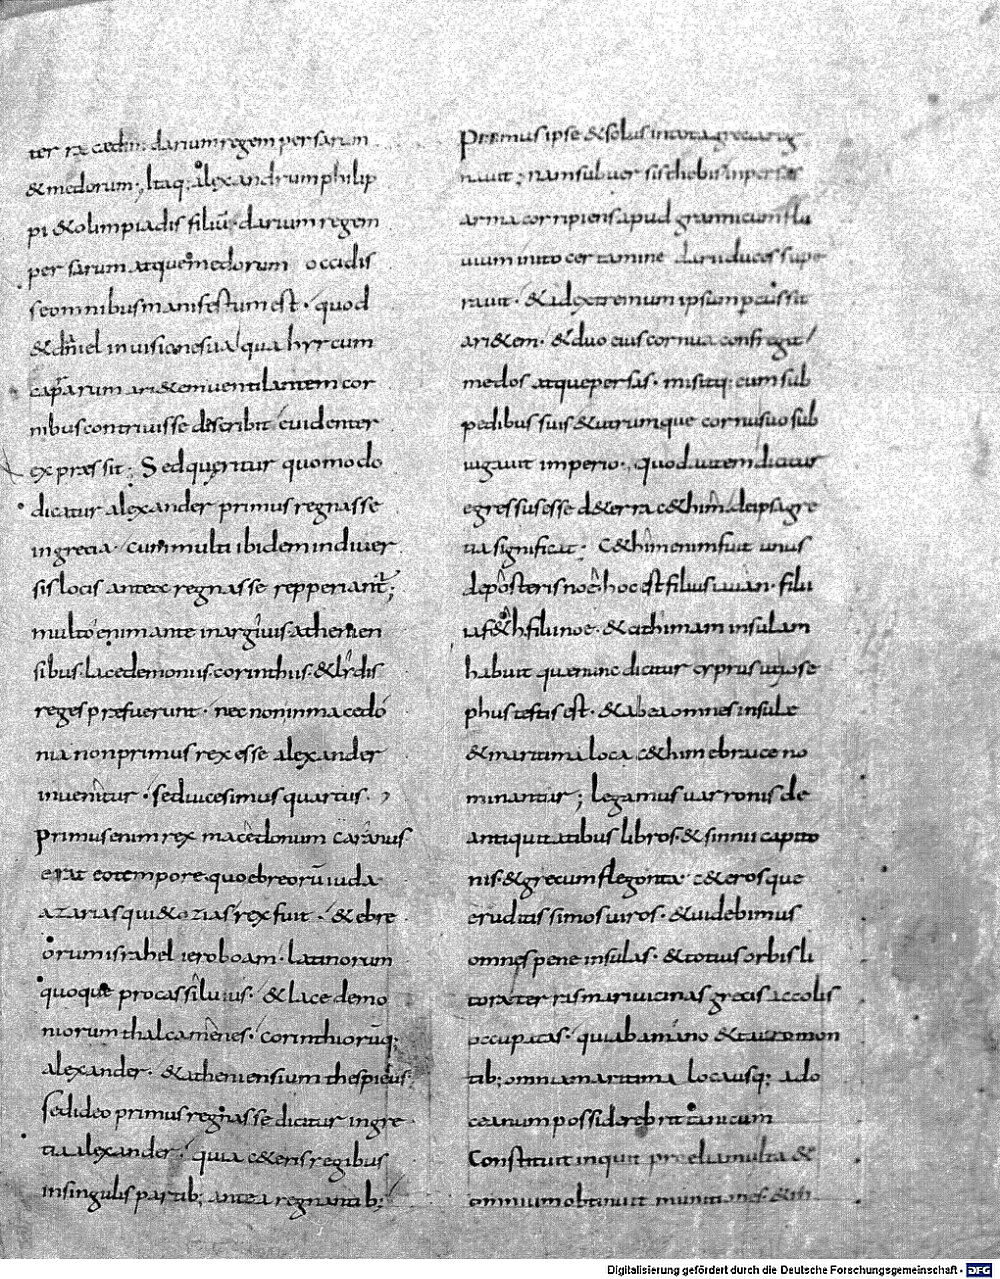 darium regem persarum
& medorum; Itaq; alexandrum philip
pi & olimpiadis filiū· darium regem
persarum atque medorum occidis
se omnibus manifestum est· quod
& dn̄iel in uisione sua qua hyrcum
caprarum ari&em uentilantem cor
nibus contriuisse describit euidenter
expressit; Sed queritur quomodo
dicatur alexander primus regnasse
in grecia· cum multi ibidem in diuer
sis locis ante regnasse repperiant̄;
multo enim ante in argiuis· athenien
sibus· lacedemoniis· corinthiis· & lydis
reges prefuerunt· nec non in macedo
nia non primus rex esse alexander
inuenitur· sed uicesimus quartus·
Primus enim rex macedonum caranus
erat eo tempore· quo ebreorū iuda
azarias qui & ozias rex fuit· & ebre
orum israhel ieroboam· latinorum
quoque procas siluius· & lacedemo
niorum thalcamenes· corinthiorūq;
alexander· & atheniensium thespieus;
sed ideo primus regnasse dicitur in gre
tia alexander· quia c&eris regibus
in singulis partib; antea regnantib;
Primus ipse & solus in tota grecia reg
nauit; nam subuersis thebis in persas
arma corripiens apud grannicum flu
uium inito certamine darii duces supe
rauit· & ad extremum ipsum percussit
ari&em· & duo eius cornua confregit
medos atque persas· misitq; eum sub
pedibus suis & utrumque cornu suo sub
iugauit imperio· quod autem dicitur
egressus esse de terra c&him de ipsa gre
tia significat· C&him enim fuit unus
de posteris noe hoc est filius iauan· filii
iafeth filii noe· & c&himam insulam
habuit que nunc dicitur cyprus ut iose
phus testis est· & ab ea omnes insule
& maritima loca c&him ebraice no
minantur; legamus uarronis de
antiquitatibus libros· & sinnii capito
nis· & grecum flegonta· c&erosque
eruditissimos uiros· & uidebimus
omnes pene insulas· & totius orbis li
tora terras mari uicinas grecis accolis
occupatas· qui ab amano & tauro mon
tib; omnia maritima loca usq; ad o
ceanum possidere britanicum
Constituit inquit proelia multa &
omnium obtinuit munitiones· &
Digitalisierung gefördert durch die Deutsche Forschungsgemeinschaft - DFG